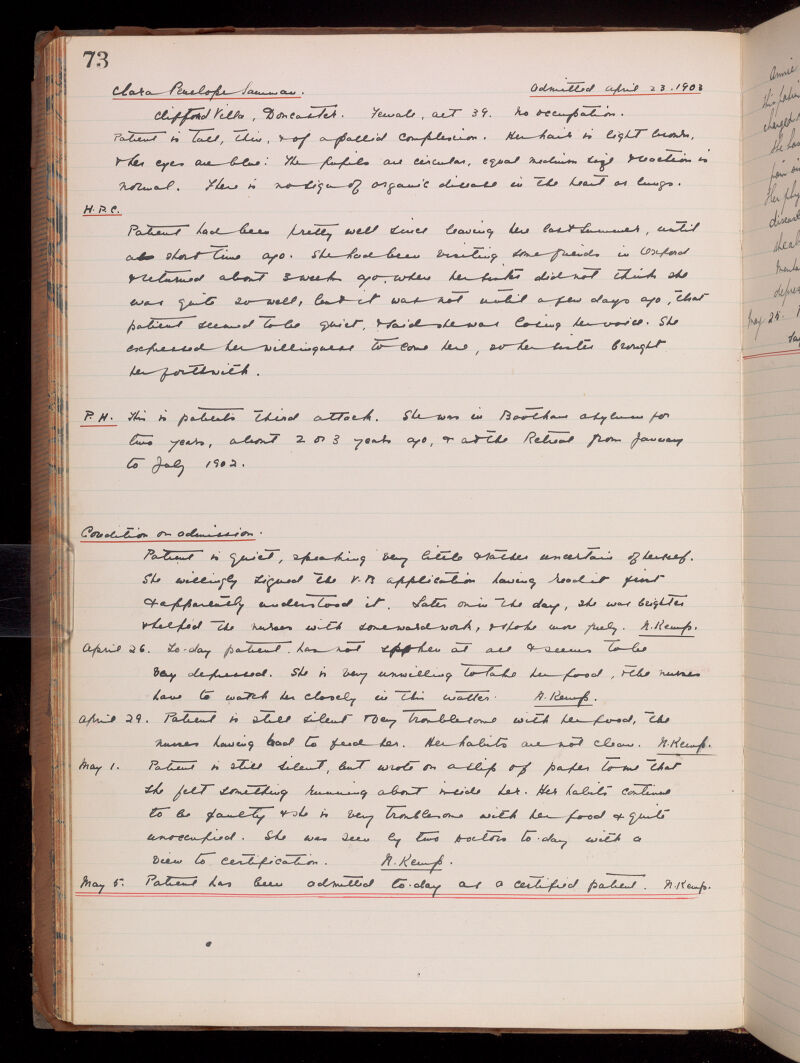 73
Clara Penelope Admitted April 23. 1903
Clifford Villa, Doncaster. Female, aet 39. No occupation.
Patient is tall, thin, & of a pallid complexion. Her hair is light brown,
& her eyes are blue: The pupils are circular, equal medium size & reaction is
normal. There is no sign of organic disease in the heart or lungs.
H.P.C.
Patient had been pretty well since leaving here last summer, until
a short time ago. She had been visiting some friends in Oxford
& returned about 3 weeks ago, when her sister did not think she
was quite so well, but it was not until a few days ago, that
patient seemed to be quiet, & said she was losing her voice. She
expressed her willingness to come here, so her sister brought
her forthwith.
P.H. This is patients third attack. She was in Bootham asylum for
two years, about 2 or 3 years ago, & at the Retreat from January
to July 1902.
Condition on admission.
Patient is quiet, speaking very little & rather uncertain of herself.
She willingly signed the V.B application having read it first
& apparently understood it. Later on in the day, she was brighter
& helped the nurses with some ward work, & spoke more freely. N. Kemp.
April 26. To-day patient has not spoken at all & seems to be
very depressed. She is very unwilling to take her food, & the nurses
have to watch her closely in this matter. N. Kemp.
April 29. Patient is still silent & very troublesome with her food, the
nurses having had to feed her. Her habits are not clean. N. Kemp.
May 1. Patient is still silent, but wrote on a slip of paper to me that
she felt something running about inside her. Her habits continue
to be faulty & she is very troublesome with her food & quite
unoccupied. She was seen by two doctors to-day with a
view to certification. N. Kemp.
May 5. Patient has been admitted to-day as a certified patient. N. Kemp.
Annie
May 25.